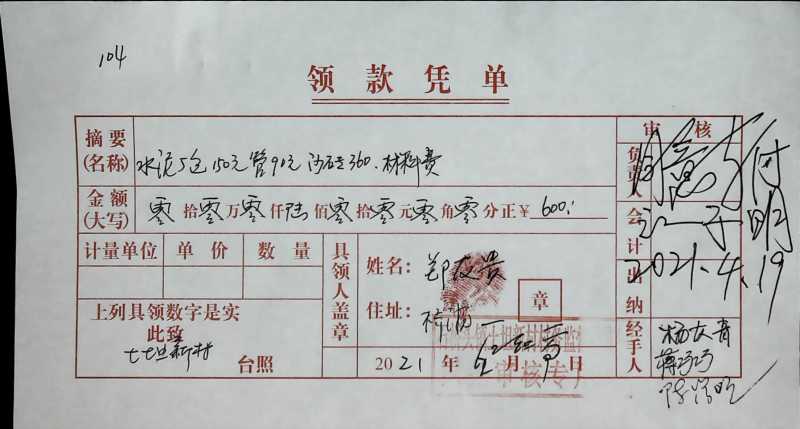 104
领款凭单
摘要(名称) 水泥5包150元管90元沙石360.材料费
金额(大写) 零拾零万零仟陆佰零拾零元零角零分正¥600.
计量单位 单价 数量
上列具领数字是实
此致
七坦新村 台照
具领人盖章
姓名：郑友贵
住址：
章
2021年 月 日
审核专
审核
负责人 同意 付
会计
2021.4.19
出纳
经手人 杨友青
蒋巧巧